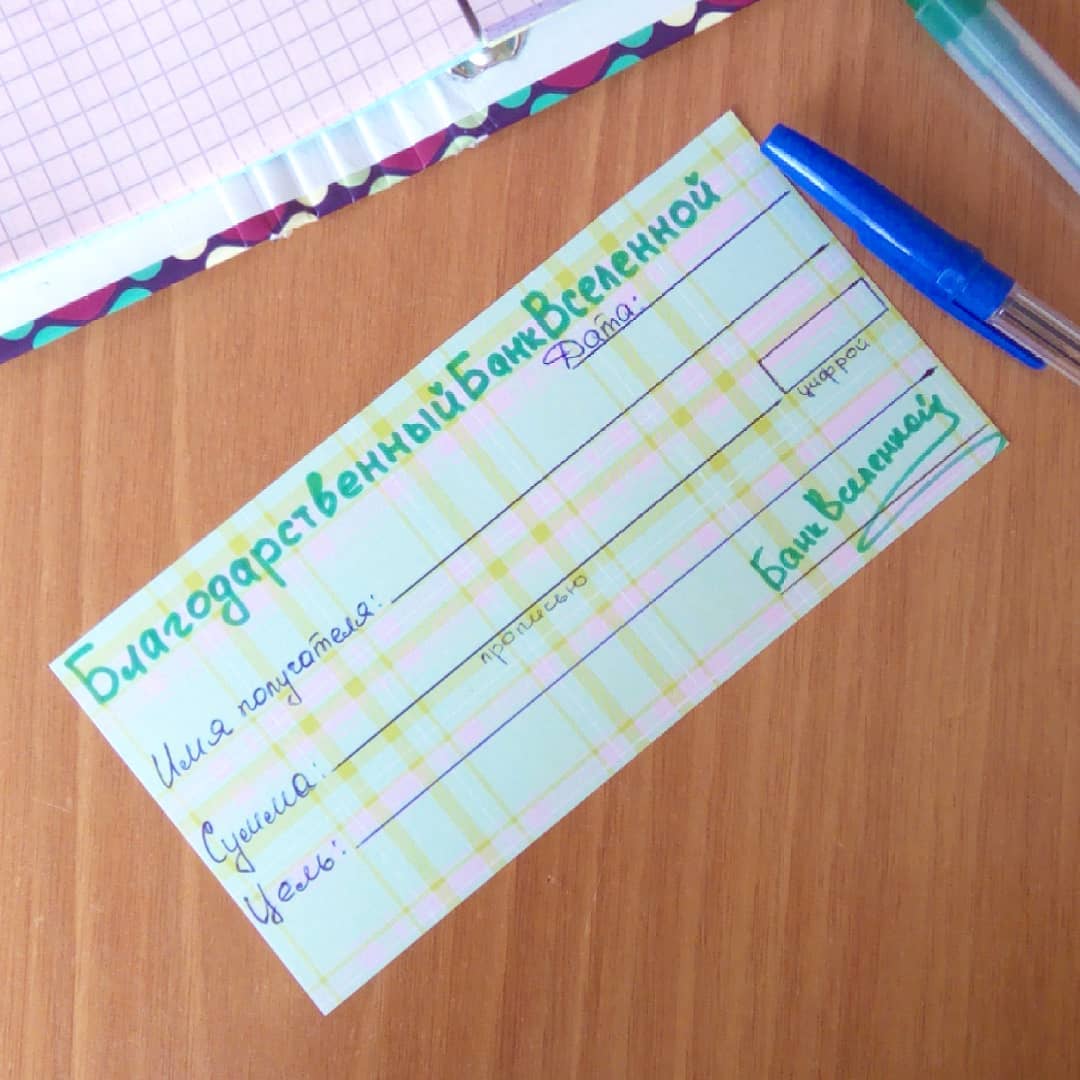 Благодарственный Банк Вселенной
Дата:
Имя получателя:
Сумма:
прописью
цифрой
Цель:
Банк Вселенной